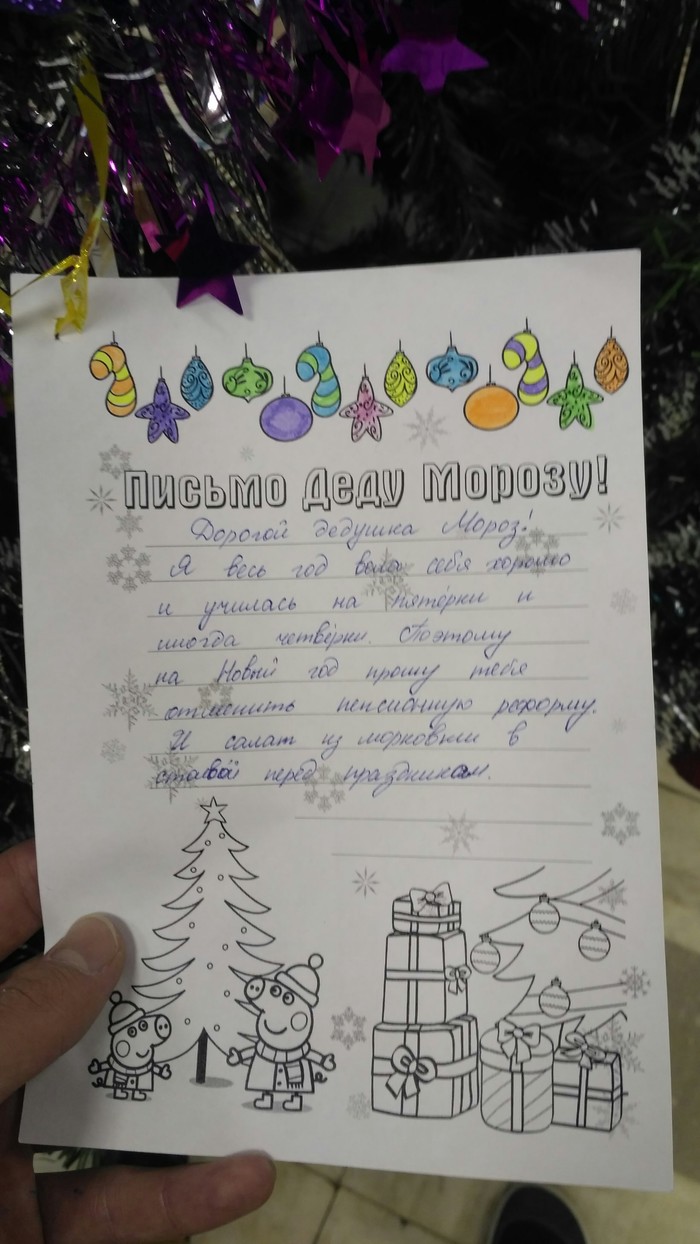 Письмо Деду Морозу!
Дорогой дедушка Мороз!
Я весь год вела себя хорошо
и училась на пятёрки и
иногда четвёрки. Поэтому
на Новый год прошу тебя
отменить пенсионную реформу.
И салат из моркови в
перед праздником.